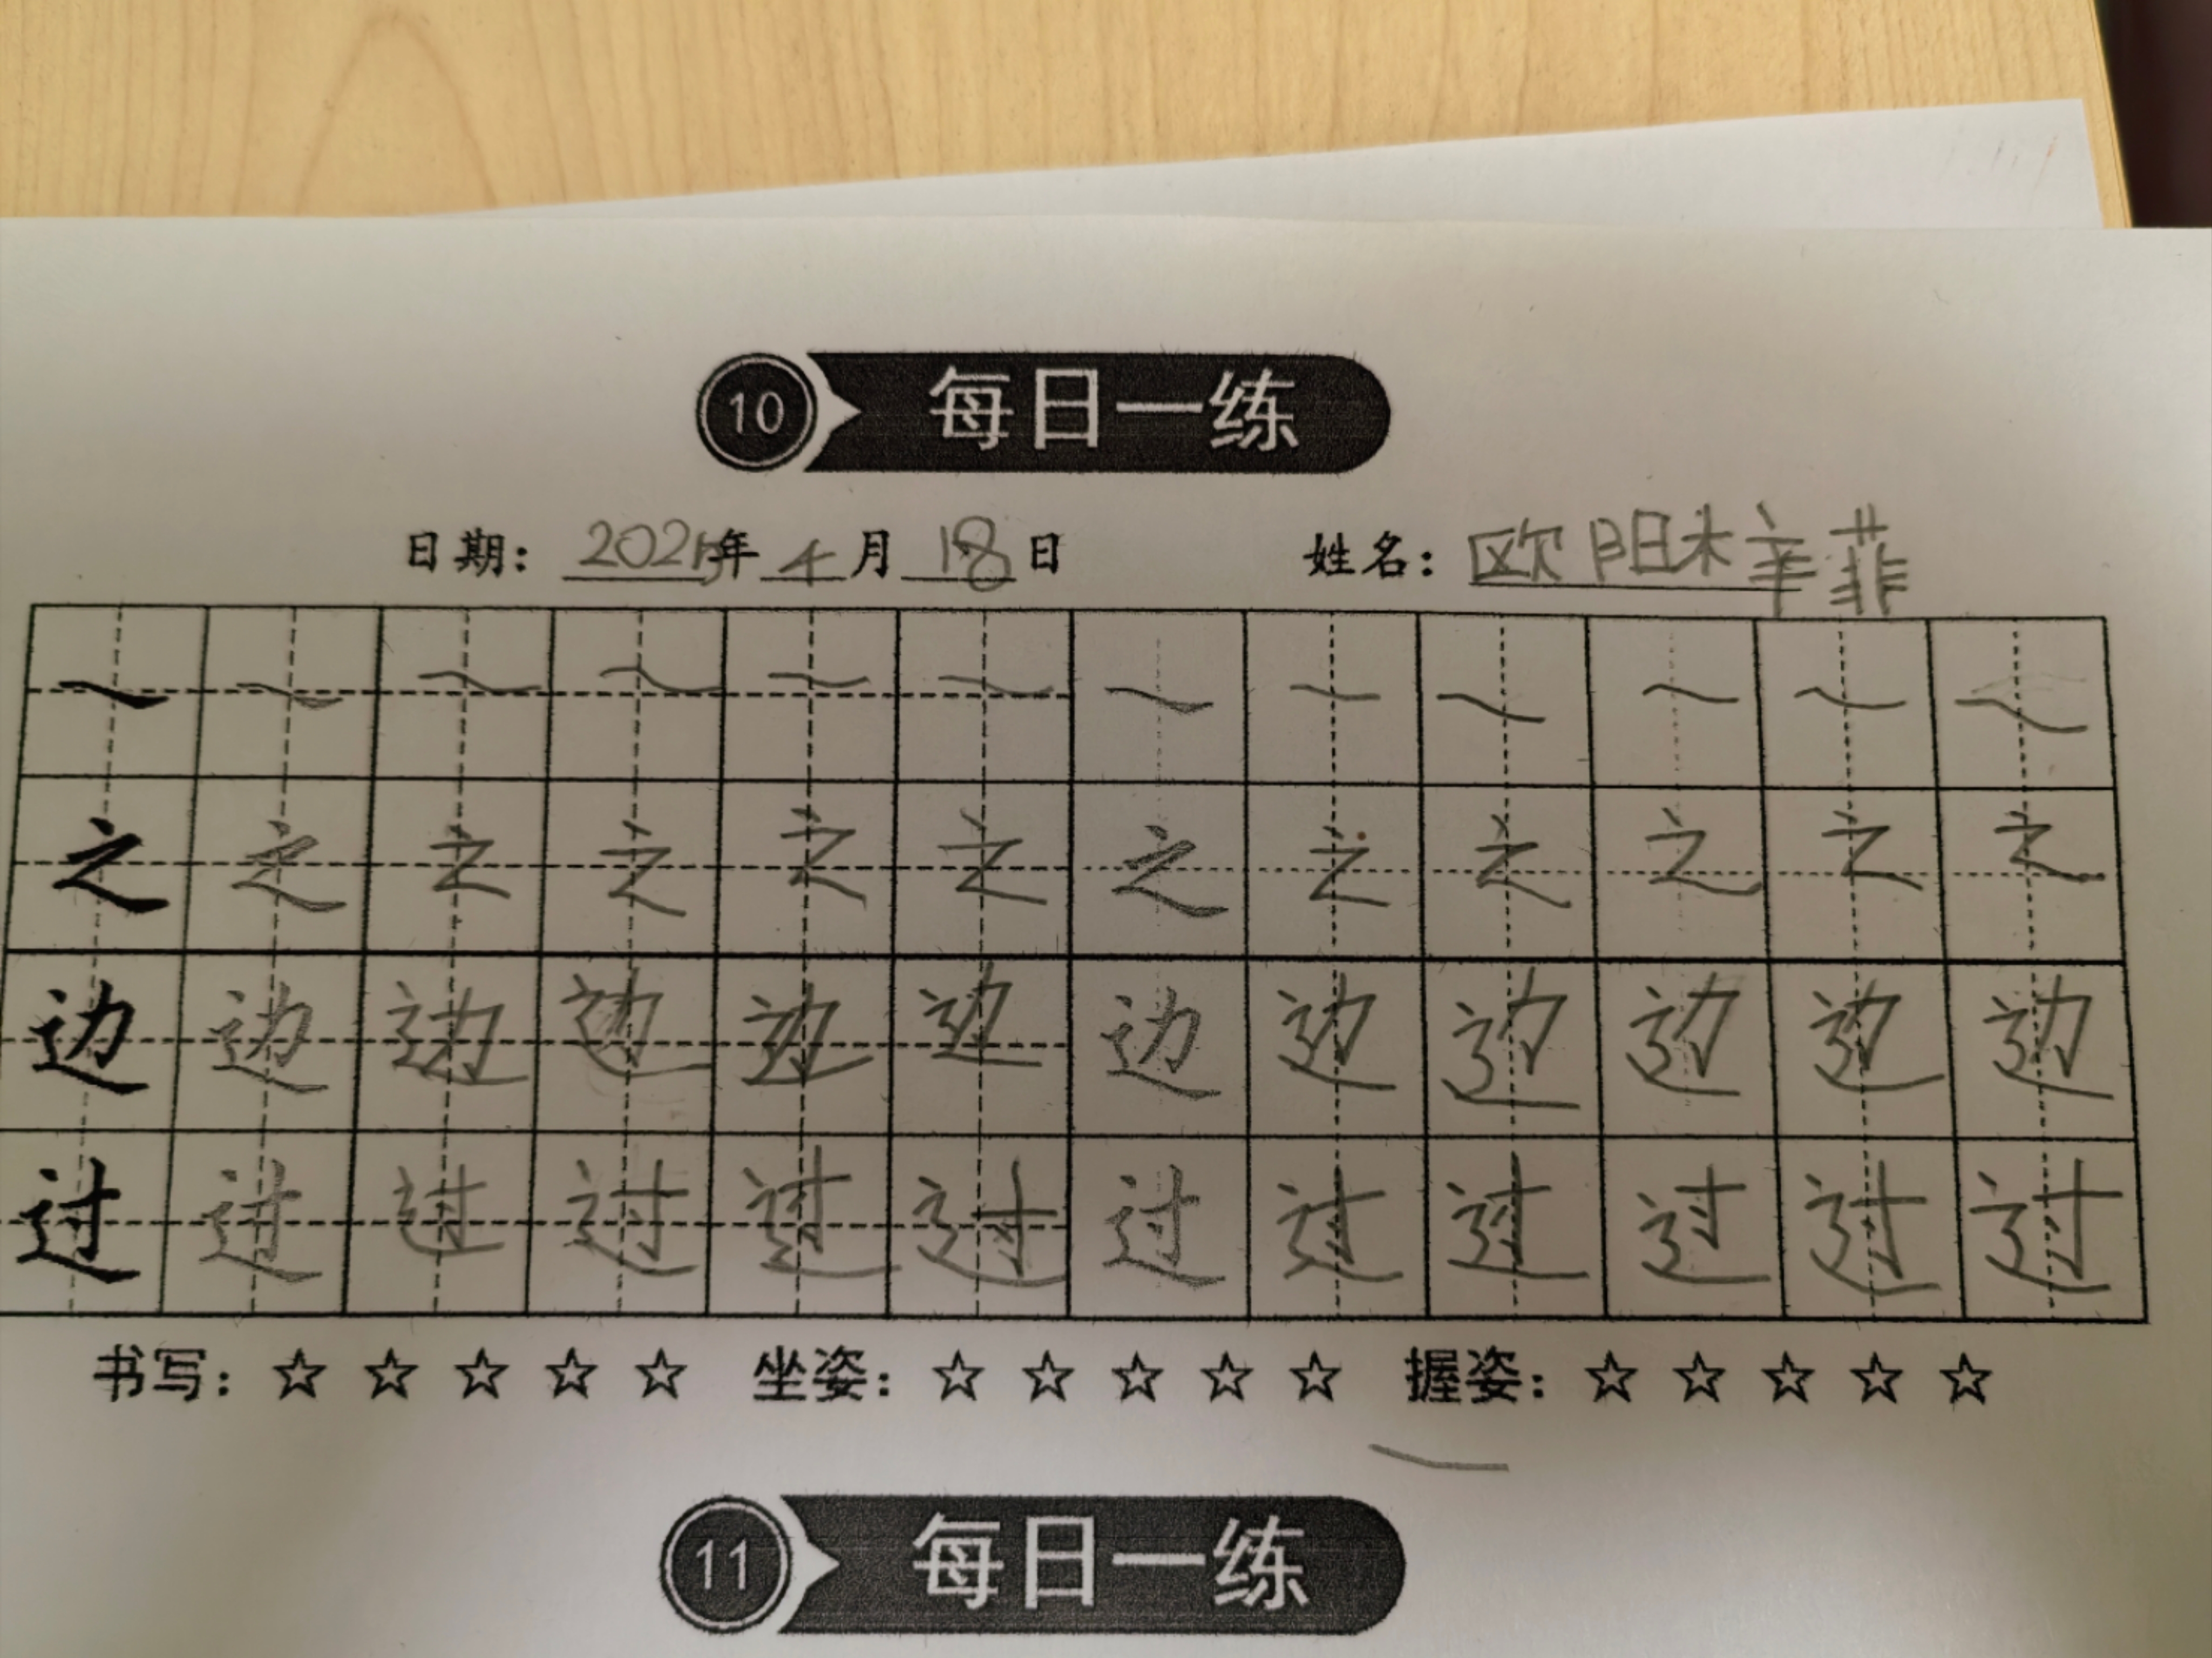 10 每日一练
日期： 2025年 4 月 18 日 姓名： 欧阳梓菲
㇏ ㇏ ㇏ ㇏ ㇏ ㇏ ㇏ ㇏ ㇏ ㇏ ㇏ ㇏
之 之 之 之 之 之 之 之 之 之 之 之
边 边 边 边 边 边 边 边 边 边 边 边
过 过 过 过 过 过 过 过 过 过 过 过
书写：☆ ☆ ☆ ☆ ☆ 坐姿：☆ ☆ ☆ ☆ ☆ 握姿：☆ ☆ ☆ ☆ ☆
11 每日一练